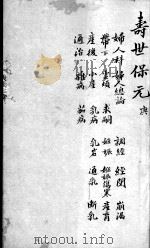 壽世保元 庚
婦人科 婦人總論 調經 經閉 崩漏
帶下 求嗣 妊娠 妊娠傷寒 產育
產後 小產 乳病 乳岩 通乳 斷乳
通治 雜病 茄病